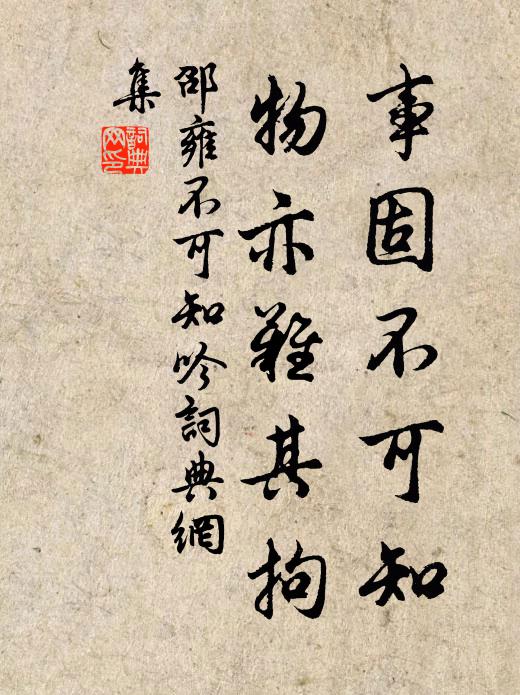 事固不可知
物亦難其拘
邵雍不可知吟詞典網
集
詞典
网印